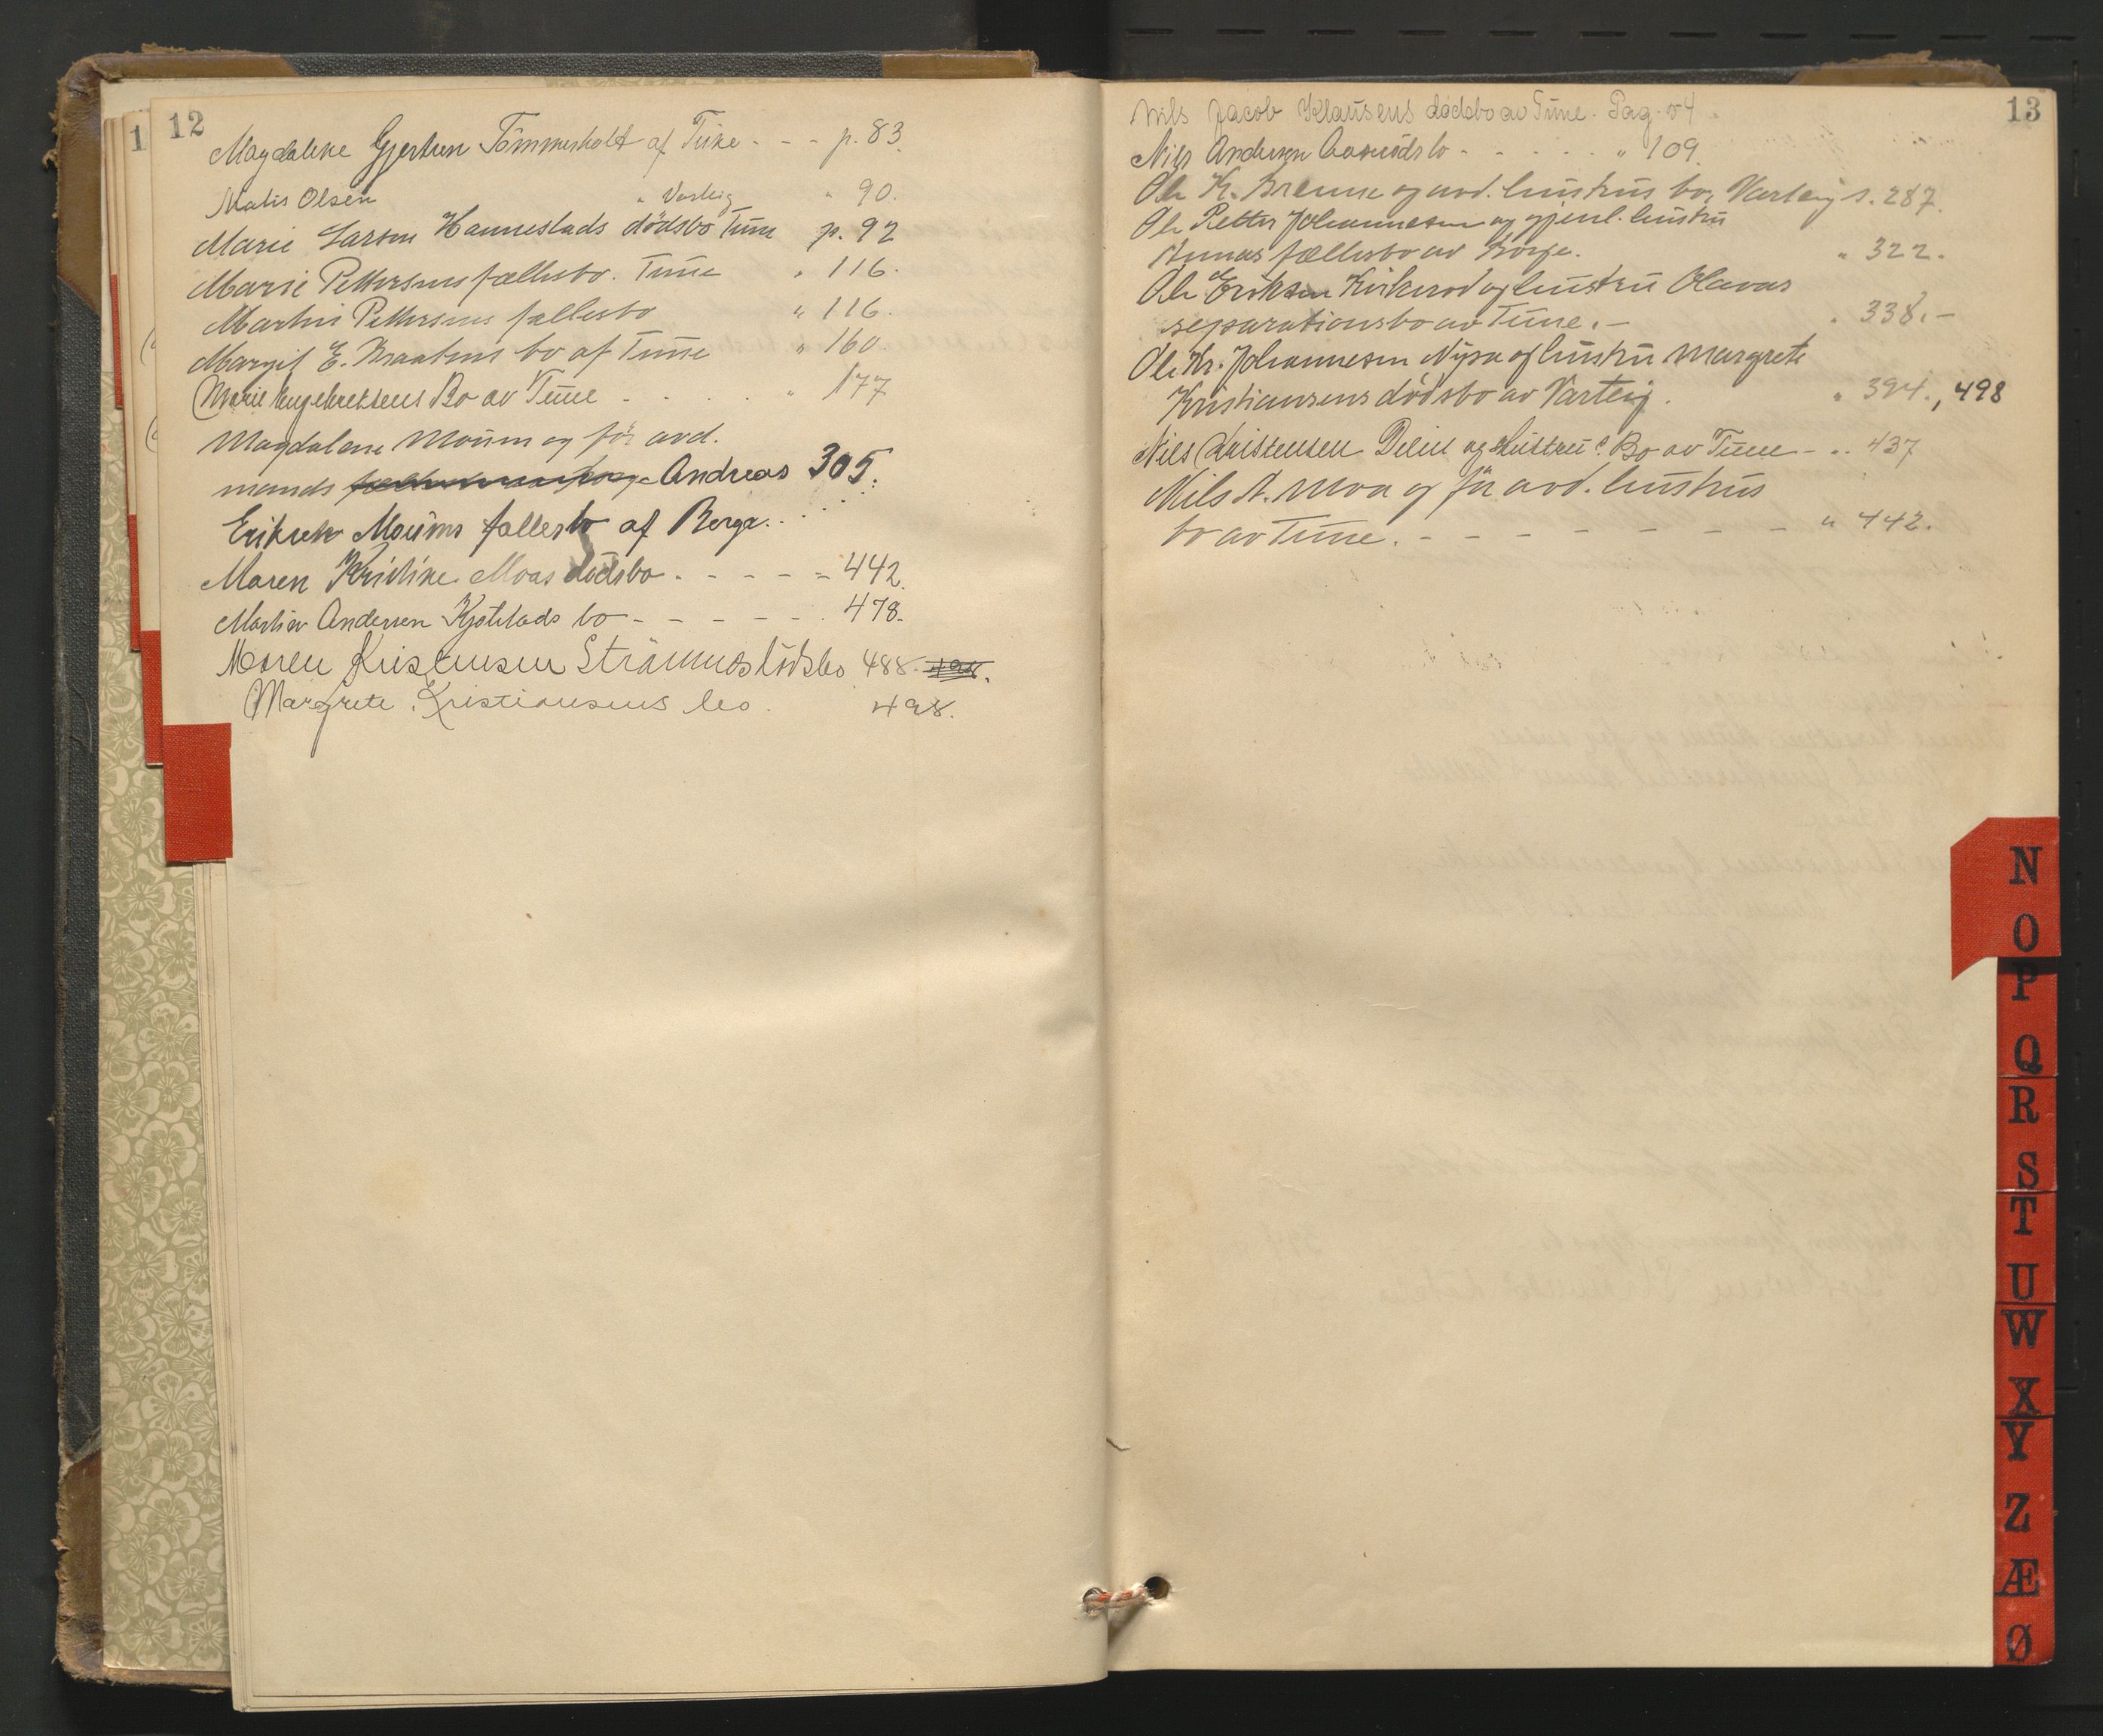 12
Magdalene Gjertsen Tömmerholt af Tune - - - p. 83.
Matis Olsen " Varteig " 90.
Marie Larsen Hannestads dödsbo Tune p. 92
Marie Pettersens fællesbo. Tune " 116.
Martin Pettersens fællesbo " 116.
Margit E. Braatens bo af Tune " 160.
Marie Engebretsens Bo av Tune - - - - " 177
Magdalene Moum og før avd.
mands Andreas 305.
Eriksen Moums fællesbo af Berga..
Maren Kristine Moas dödsbo - - - - = 442.
Martin Andersen Kjølstads bo - - - - - 478.
Maren Kristensen Strömnes dödsbo 488. 498.
Margrete Kristiansens bo. 498.
13
Nils Jacob Klausens dødsbo av Tune. Pag. 54.
Nils Andersen bo - - - - - " 109.
Ole K. Brenne og avd. hustrus bo, Varteig s. 287.
Ole Petter Johannesen og gjenl. hustru
Annas fællesbo av Borge. " 322.
Ole Eriksen Kirkerød og hustru Olavas
separationsbo av Tune. - " 338.-
Ole Kr. Johannesen Nysa og hustru Margrete
Kristiansens dødsbo av Varteig. " 394., 498
Nils Kristensen og Hustrus Bo av Tune - " 437
Nils A. Moa og før avd. hustrus
bo av Tune. - - - - - - - " 442.
N
O
P
Q
R
S
T
U
W
X
Y
Z
Æ
Ø